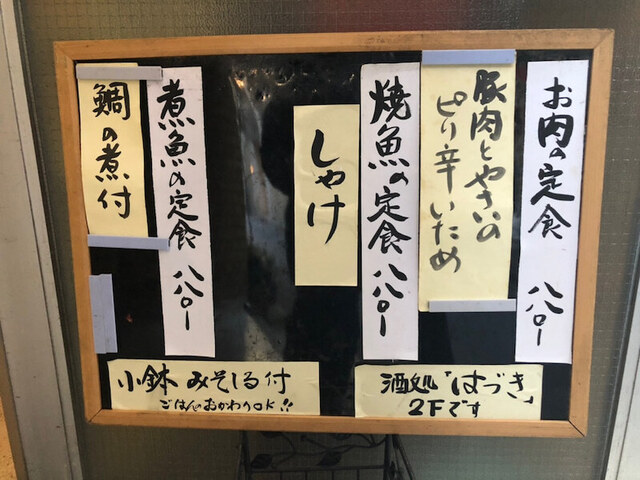 お肉の定食 八八〇ー
豚肉とやさいの
ピリ辛いため
焼魚の定食 八八〇ー
しゃけ
煮魚の定食 八八〇ー
鯛の煮付
酒処「はづき」
2Fです
小鉢 みそしる付
ごはんのおかわりOK!!